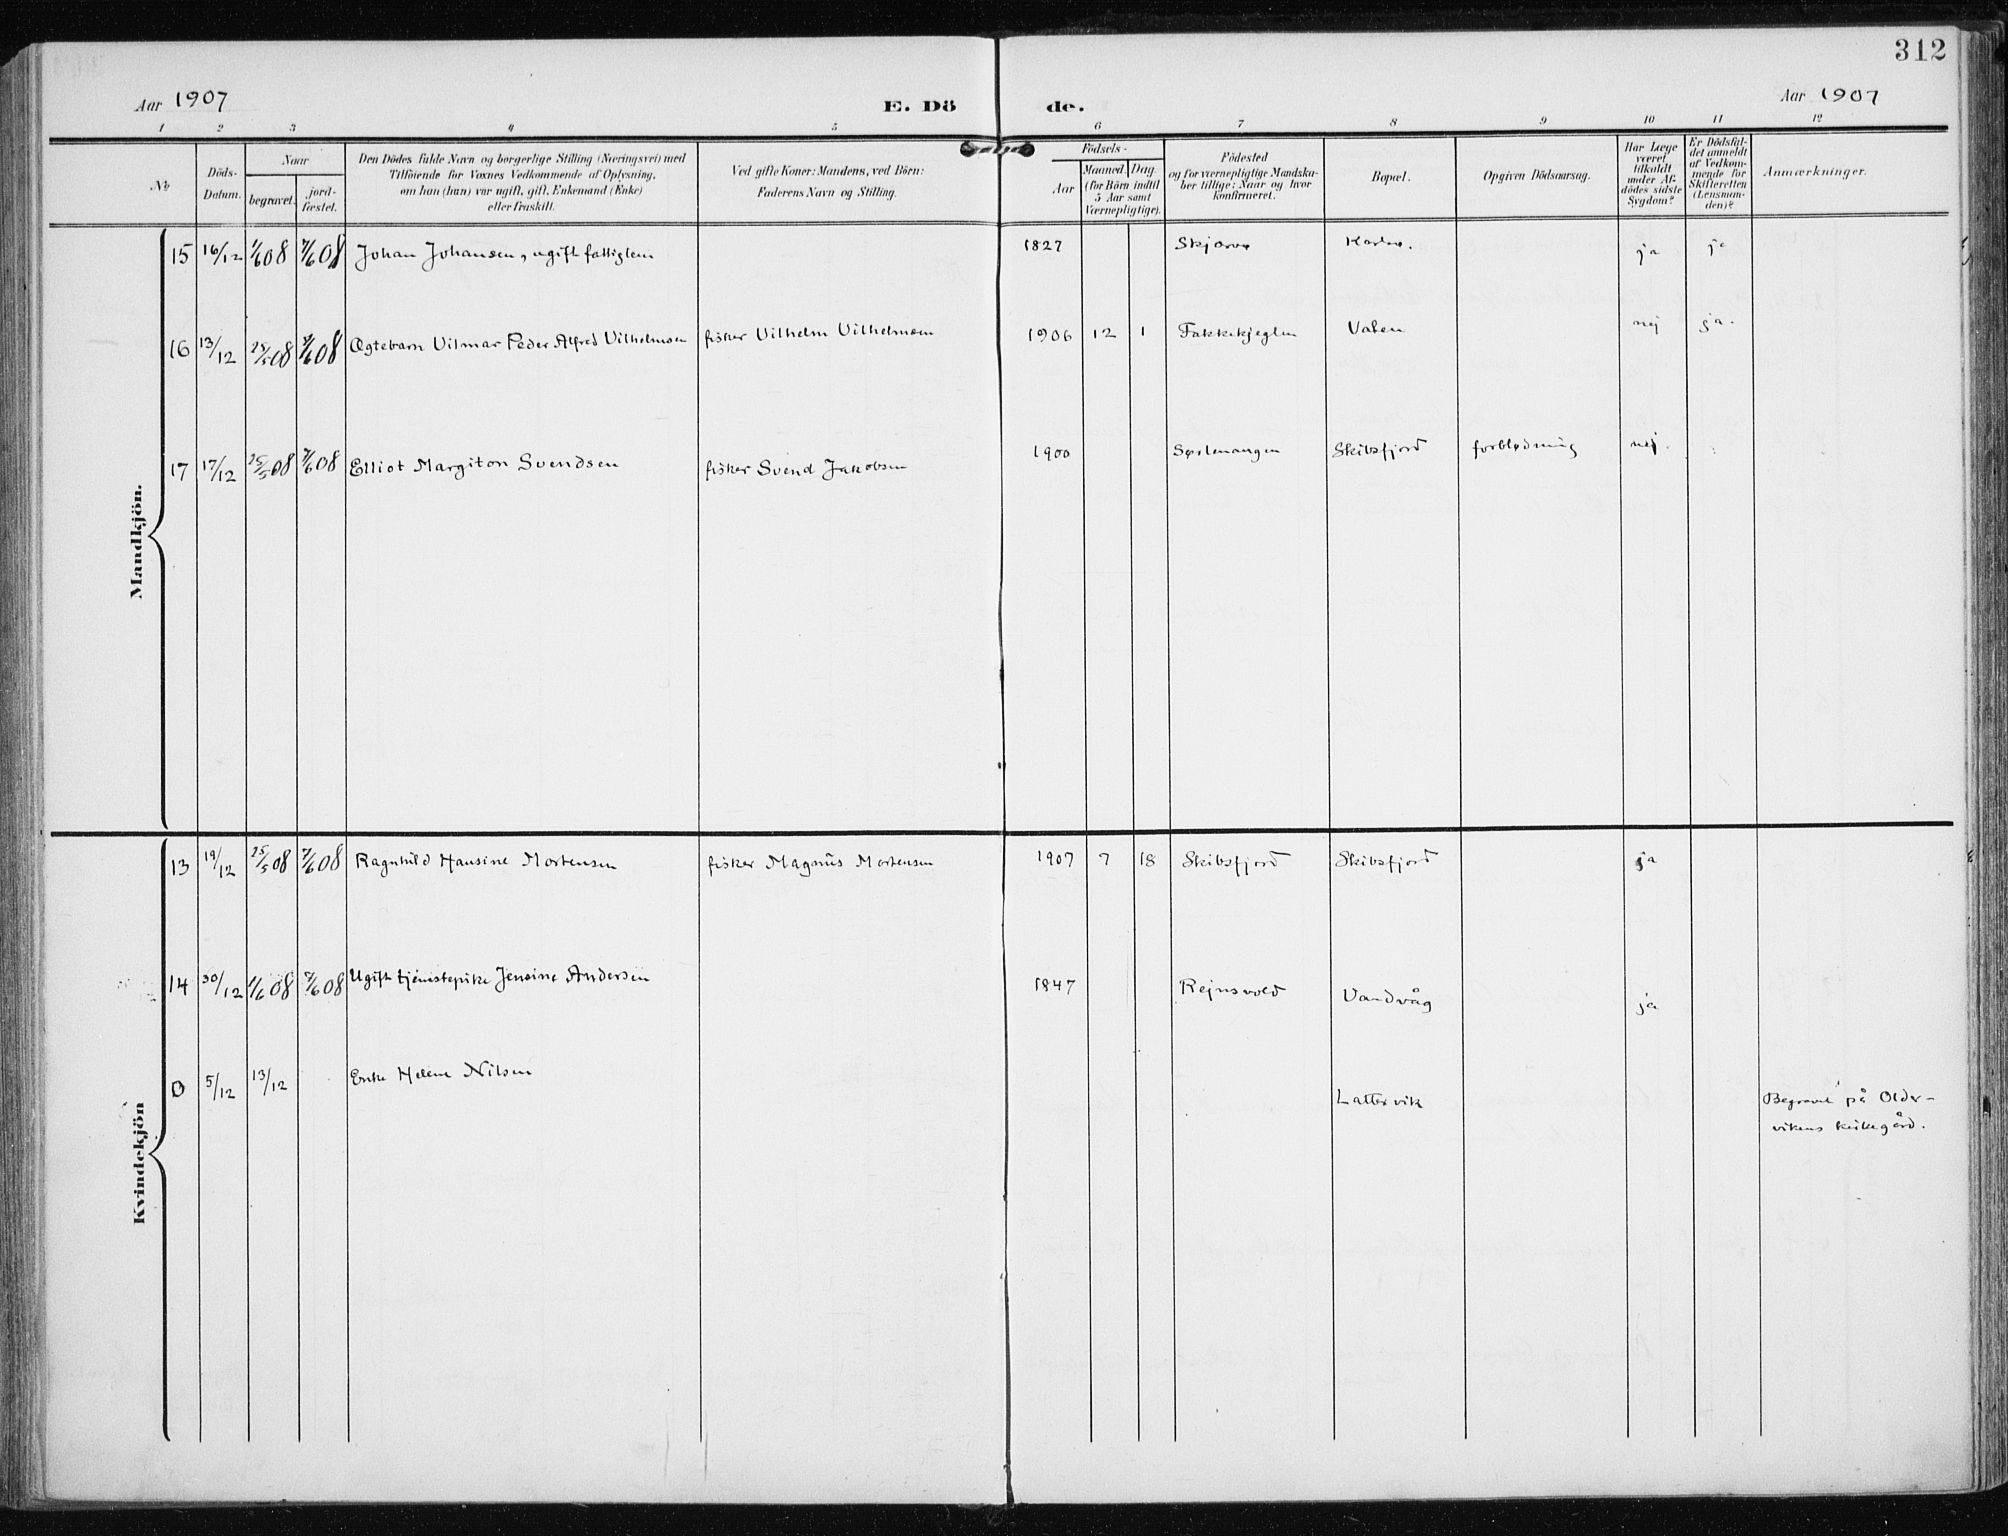 312
Aar 1907
E. Dö de.
Aar 1907
1 2 3 4 5 6 7 8 9 10 11 12
No
Döds-
Datum.
Naar
begravet.
jord-
fæstet.
Den Dödes fulde Navn og borgerlige Stilling (Næringsvei) med
Tilföiende for Voxnes Vedkommende af Oplysning,
om han (hun) var ugift, gift, Enkemand (Enke)
eller fraskilt.
Ved gifte Koner: Mandens, ved Börn:
Faderens Navn og Stilling.
Födsels-
Aar
Maaned. Dag.
(for Börn indtil
5 Aar samt
Værnepligtige).
Födested
og for værnepligtige Mandska-
ber tillige: Naar og hvor
konfirmeret.
Bopæl.
Opgiven Dödsaarsag.
Har Læge
været
tilkaldt
under Af-
dödes sidste
Sygdom?
Er Dödsfal-
det anmeldt
af Vedkom-
mende for
Skifteretten
(Lensman-
den)?
Anmærkninger.
Mandkjön.
15 16/12 1/6 08 7/6 08 Johan Johansen, ugift fattiglem 1827 Skjærvø Karlsø. ja ja
16 13/12 25/5 08 7/6 08 Ægtebarn Vilmar Peder Alfred Vilhelmsen fisker Vilhelm Vilhelmsen 1906 12 1 Fakkekjeglen Valen nej ja.
17 17/12 25/5 08 7/6 08 Elliot Margiton Svendsen fisker Svend Jakobsen 1900 Sørlenangen Skibsfjord forblødning nej.
Kvindekjön
13 19/12 25/5 08 7/6 08 Ragnhild Hansine Mortensen fisker Magnus Mortensen 1907 7 18 Skibsfjord Skibsfjord ja
14 30/12 1/6 08 7/6 08 Ugift tjenestepike Jensine Andersen 1847 Rejnsvold Vandvåg ja
0 5/12 13/12 Enke Helene Nilsen Lattervik Begravet på Older-
vikens kirkegård.